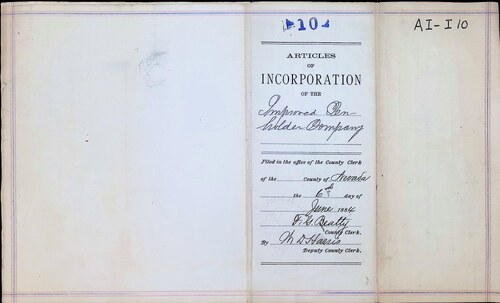 10
AI-I10
ARTICLES
OF
INCORPORATION
OF THE
Improved Pen-
holder Company
Filed in the office of the County Clerk
of the County of Nevada
the 6th day of
June 1884
F. G. Beatty
County Clerk.
By M D Harris
Deputy County Clerk.